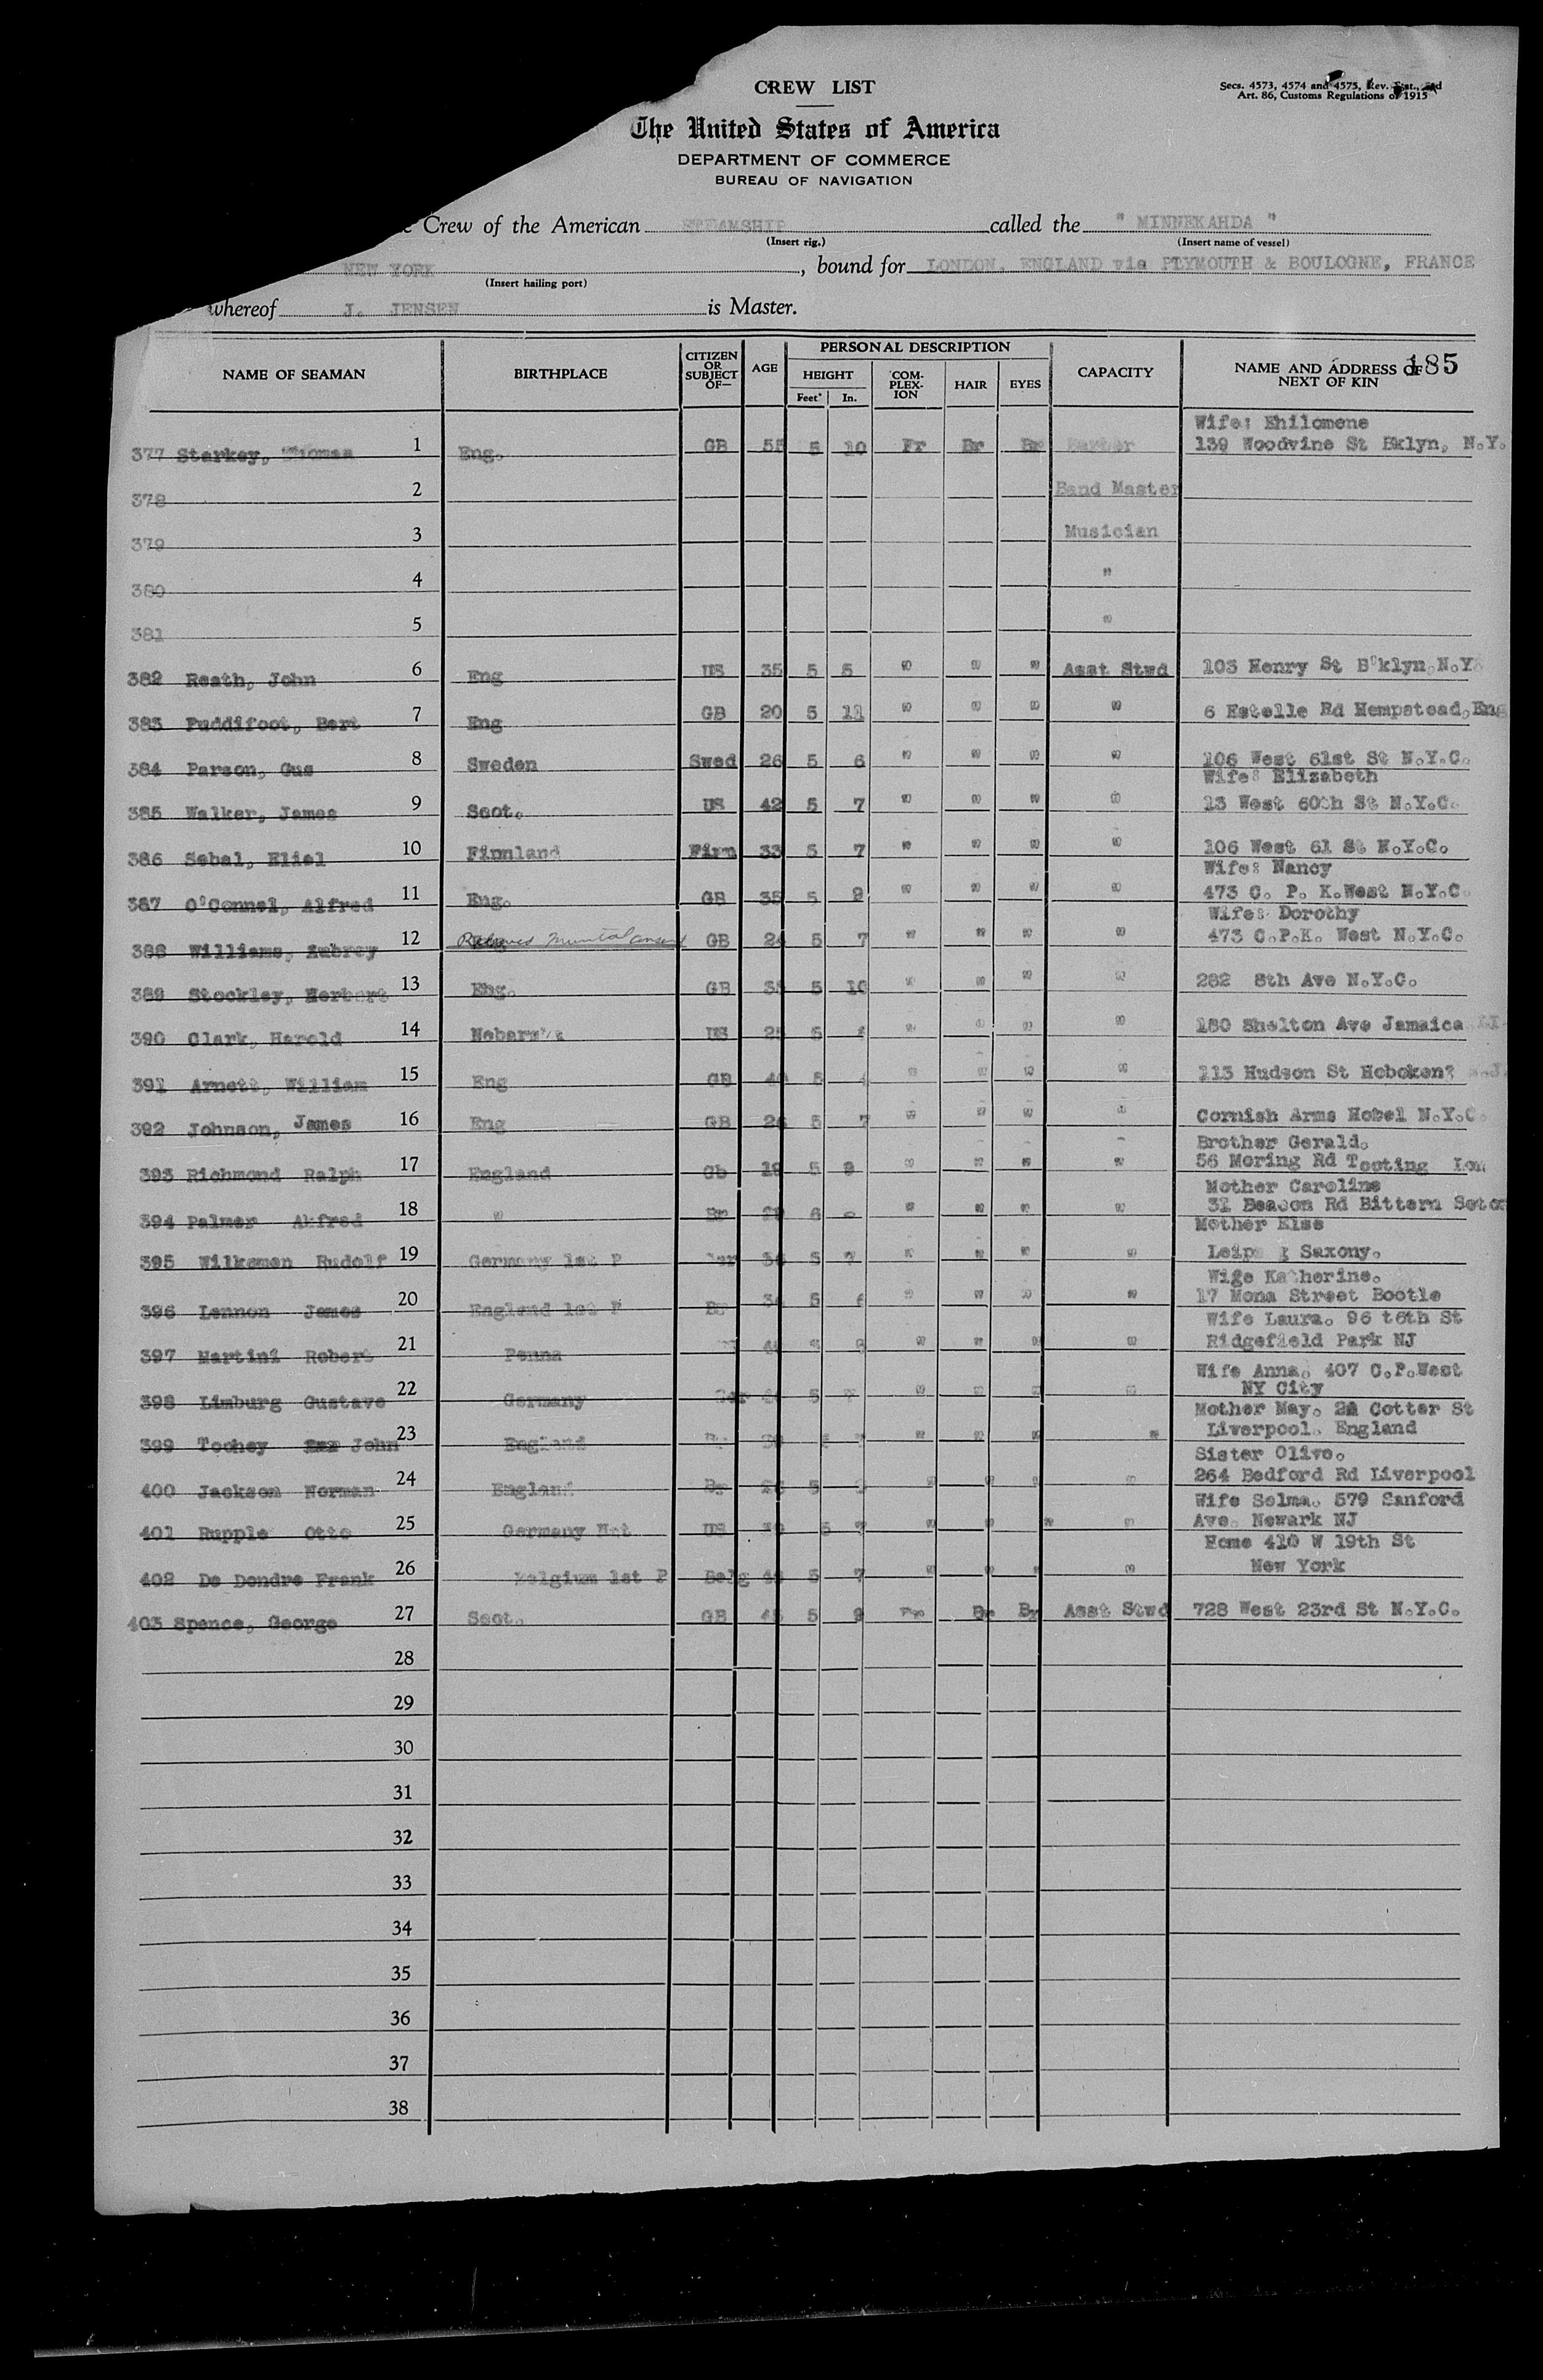 CREW LIST
Secs. 4573, 4574 and 4575, Rev. Stat., and
Art. 86, Customs Regulations of 1915
The United States of America
DEPARTMENT OF COMMERCE
BUREAU OF NAVIGATION
Crew of the American STEAMSHIP called the " MINNEKAHDA "
(Insert rig.) (Insert name of vessel)
NEW YORK, bound for LONDON, ENGLAND via PLYMOUTH & BOULOGNE, FRANCE
(Insert hailing port)
whereof J. JENSEN is Master.
NAME OF SEAMAN BIRTHPLACE CITIZEN OR SUBJECT OF— AGE PERSONAL DESCRIPTION HEIGHT Feet In. COM-PLEX-ION HAIR EYES CAPACITY NAME AND ADDRESS OF NEXT OF KIN 185
Wife: Ehilomene
377 Starkey, Thomas 1 Eng. GB 55 5 10 Fr Br Br Barber 139 Woodvine St Bklyn, N.Y.
378 2 Band Master
379 3 Musician
380 4 "
381 5 "
382 Reath, John 6 Eng US 35 5 5 " " " Asst Stwd 103 Henry St B'klyn, N.Y.
383 Puddifoot, Bert 7 Eng GB 20 5 11 " " " " 6 Estelle Rd Hempstead, Eng
384 Parson, Gus 8 Sweden Swed 26 5 6 " " " " 106 West 61st St N.Y.C.
Wife: Elizabeth
385 Walker, James 9 Scot. US 42 5 7 " " " " 13 West 60th St N.Y.C.
386 Sebal, Eliel 10 Finnland Finn 33 5 7 " " " " 106 West 61 St N.Y.C.
Wife: Nancy
387 O'Connel, Alfred 11 Eng. GB 35 5 9 " " " " 473 C. P. K. West N.Y.C.
Wife: Dorothy
388 Williams, Aubrey 12 GB 24 5 7 " " " " 473 C.P.K. West N.Y.C.
389 Stockley, Herbert 13 Eng. GB 35 5 10 " " " " 282 8th Ave N.Y.C.
390 Clark, Harold 14 US 25 5 " " " " 180 Shelton Ave Jamaica
391 Arnett, William 15 Eng GB 40 5 " " " " 113 Hudson St Hoboken
392 Johnson, James 16 Eng GB 26 5 7 " " " " Cornish Arms Hotel N.Y.C.
Brother Gerald.
393 Richmond Ralph 17 England Gb 19 5 9 " " " " 56 Moring Rd Tooting Lon
Mother Caroline
394 Palmer Alfred 18 " Br 6 " " " " 31 Beacon Rd Bittern Soton
Mother Else
395 Wilksman Rudolf 19 Germany 1st P 5 7 " " " " Saxony.
Wige Katherine.
396 Lennon James 20 England 1st P Br 5 6 " " " " 17 Mona Street Bootle
Wife Laura. 96 t6th St
397 Martini Robert 21 Penna " " " " Ridgefield Park NJ
Wife Anna. 407 C.P.West
398 Limburg Gustave 22 Germany Ger 5 " " " " NY City
Mother May. 2A Cotter St
399 Toohey John 23 England " " " " Liverpool. England
Sister Olive.
400 Jackson Norman 24 England Br 5 " " " " 264 Bedford Rd Liverpool
Wife Selma. 579 Sanford
401 Rupple Otto 25 Germany US 5 7 " " " " Ave. Newark NJ
Home 410 W 19th St
402 De Dondre Frank 26 Belgium 1st P Belg 5 7 " " " " New York
403 Spence, George 27 Scot. GB 45 5 9 Br Br Asst Stwd 728 West 23rd St N.Y.C.
28
29
30
31
32
33
34
35
36
37
38